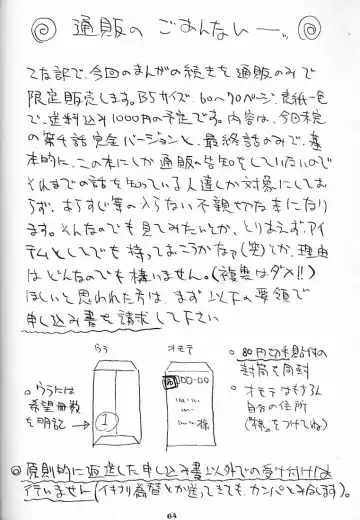 通販の ごあんない ー。。
てな訳で、今回のまんがの続きを通販のみで
限定販売します。B5サイズ、60〜70ページ、表紙一色
で、送料込み1000円の予定です。内容は、今回未定
の第4話完全バージョンと、最終話のみで、基
本的に、この本にしか通販の告知をしていないので
それまでの話を知っている人達しか対象にしてお
らず、あらすじ等の入らない不親切な本になり
ます。そんなのでも見てみたいとか、とりあえずアイ
テムとしてでも持っておこうかなァ(笑)とか、理由
はどんなのでも構いません。(複製はダメ!!)
ほしいと思われた方は、まず以下の要領で
申し込み書を請求して下さい
うら
オモテ
○うらには
希望冊数
を明記→
1
80
様
○80円切手貼付の
封筒を同封
○オモテはもちろん
自分の住所
("様"をつけてね)
◎原則的に返送した申し込み書以外での受け付けは
行いません(イキナリ為替とか送ってきても、カンパとみなします)。
64